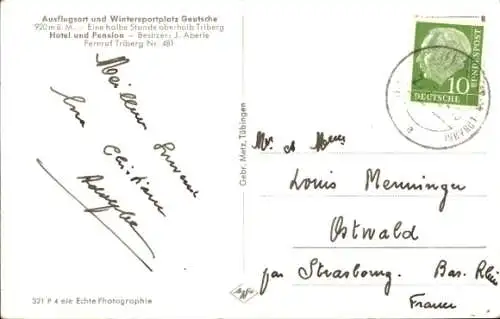 Ausflugsort und Wintersportplatz Geutsche
920 m ü. M. - Eine halbe Stunde oberhalb Triberg
Hotel und Pension - Besitzer: J. Aberle
Fernruf Triberg Nr. 481
Meilleur Souvenir
Christiane
Adolphe
321 P 4 ele Echte Photographie
Gebr. Metz, Tübingen
Agfa
10
DEUTSCHE
BUNDESPOST
Mr et Mme
Louis Menninger
Ostwald
par Strasbourg. Bas. Rhin
France